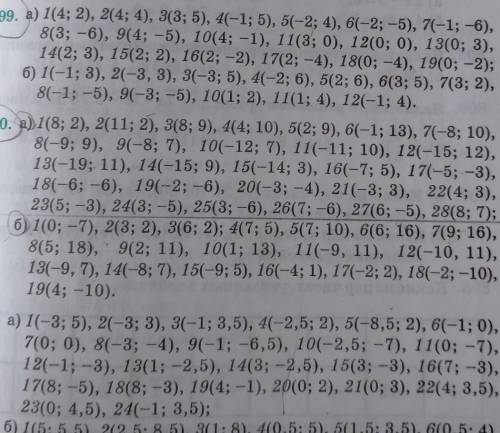 99. а) 1(4; 2), 2(4; 4), 3(3; 5), 4(−1; 5), 5(−2; 4), 6(−2; −5), 7(−1; −6),
8(3; −6), 9(4; −5), 10(4; −1), 11(3; 0), 12(0; 0), 13(0; 3),
14(2; 3), 15(2; 2), 16(2; −2), 17(2; −4), 18(0; −4), 19(0; −2);
б) 1(−1; 3), 2(−3, 3), 3(−3; 5), 4(−2; 6), 5(2; 6), 6(3; 5), 7(3; 2),
8(−1; −5), 9(−3; −5), 10(1; 2), 11(1; 4), 12(−1; 4).
0. а) 1(8; 2), 2(11; 2), 3(8; 9), 4(4; 10), 5(2; 9), 6(−1; 13), 7(−8; 10),
8(−9; 9), 9(−8; 7), 10(−12; 7), 11(−11; 10), 12(−15; 12),
13(−19; 11), 14(−15; 9), 15(−14; 3), 16(−7; 5), 17(−5; −3),
18(−6; −6), 19(−2; −6), 20(−3; −4), 21(−3; 3), 22(4; 3),
23(5; −3), 24(3; −5), 25(3; −6), 26(7; −6), 27(6; −5), 28(8; 7);
б) 1(0; −7), 2(3; 2), 3(6; 2); 4(7; 5), 5(7; 10), 6(6; 16), 7(9; 16),
8(5; 18), 9(2; 11), 10(1; 13), 11(−9, 11), 12(−10, 11),
13(−9, 7), 14(−8; 7), 15(−9; 5), 16(−4; 1), 17(−2; 2), 18(−2; −10),
19(4; −10).
а) 1(−3; 5), 2(−3; 3), 3(−1; 3,5), 4(−2,5; 2), 5(−8,5; 2), 6(−1; 0),
7(0; 0), 8(−3; −4), 9(−1; −6,5), 10(−2,5; −7), 11(0; −7),
12(−1; −3), 13(1; −2,5), 14(3; −2,5), 15(3; −3), 16(7; −3),
17(8; −5), 18(8; −3), 19(4; −1), 20(0; 2), 21(0; 3), 22(4; 3,5),
23(0; 4,5), 24(−1; 3,5);
б) 1(5; 5,5), 2(2,5; 8,5), 3(1; 8), 4(0,5; 5), 5(1,5; 3,5), 6(0,5; 4),